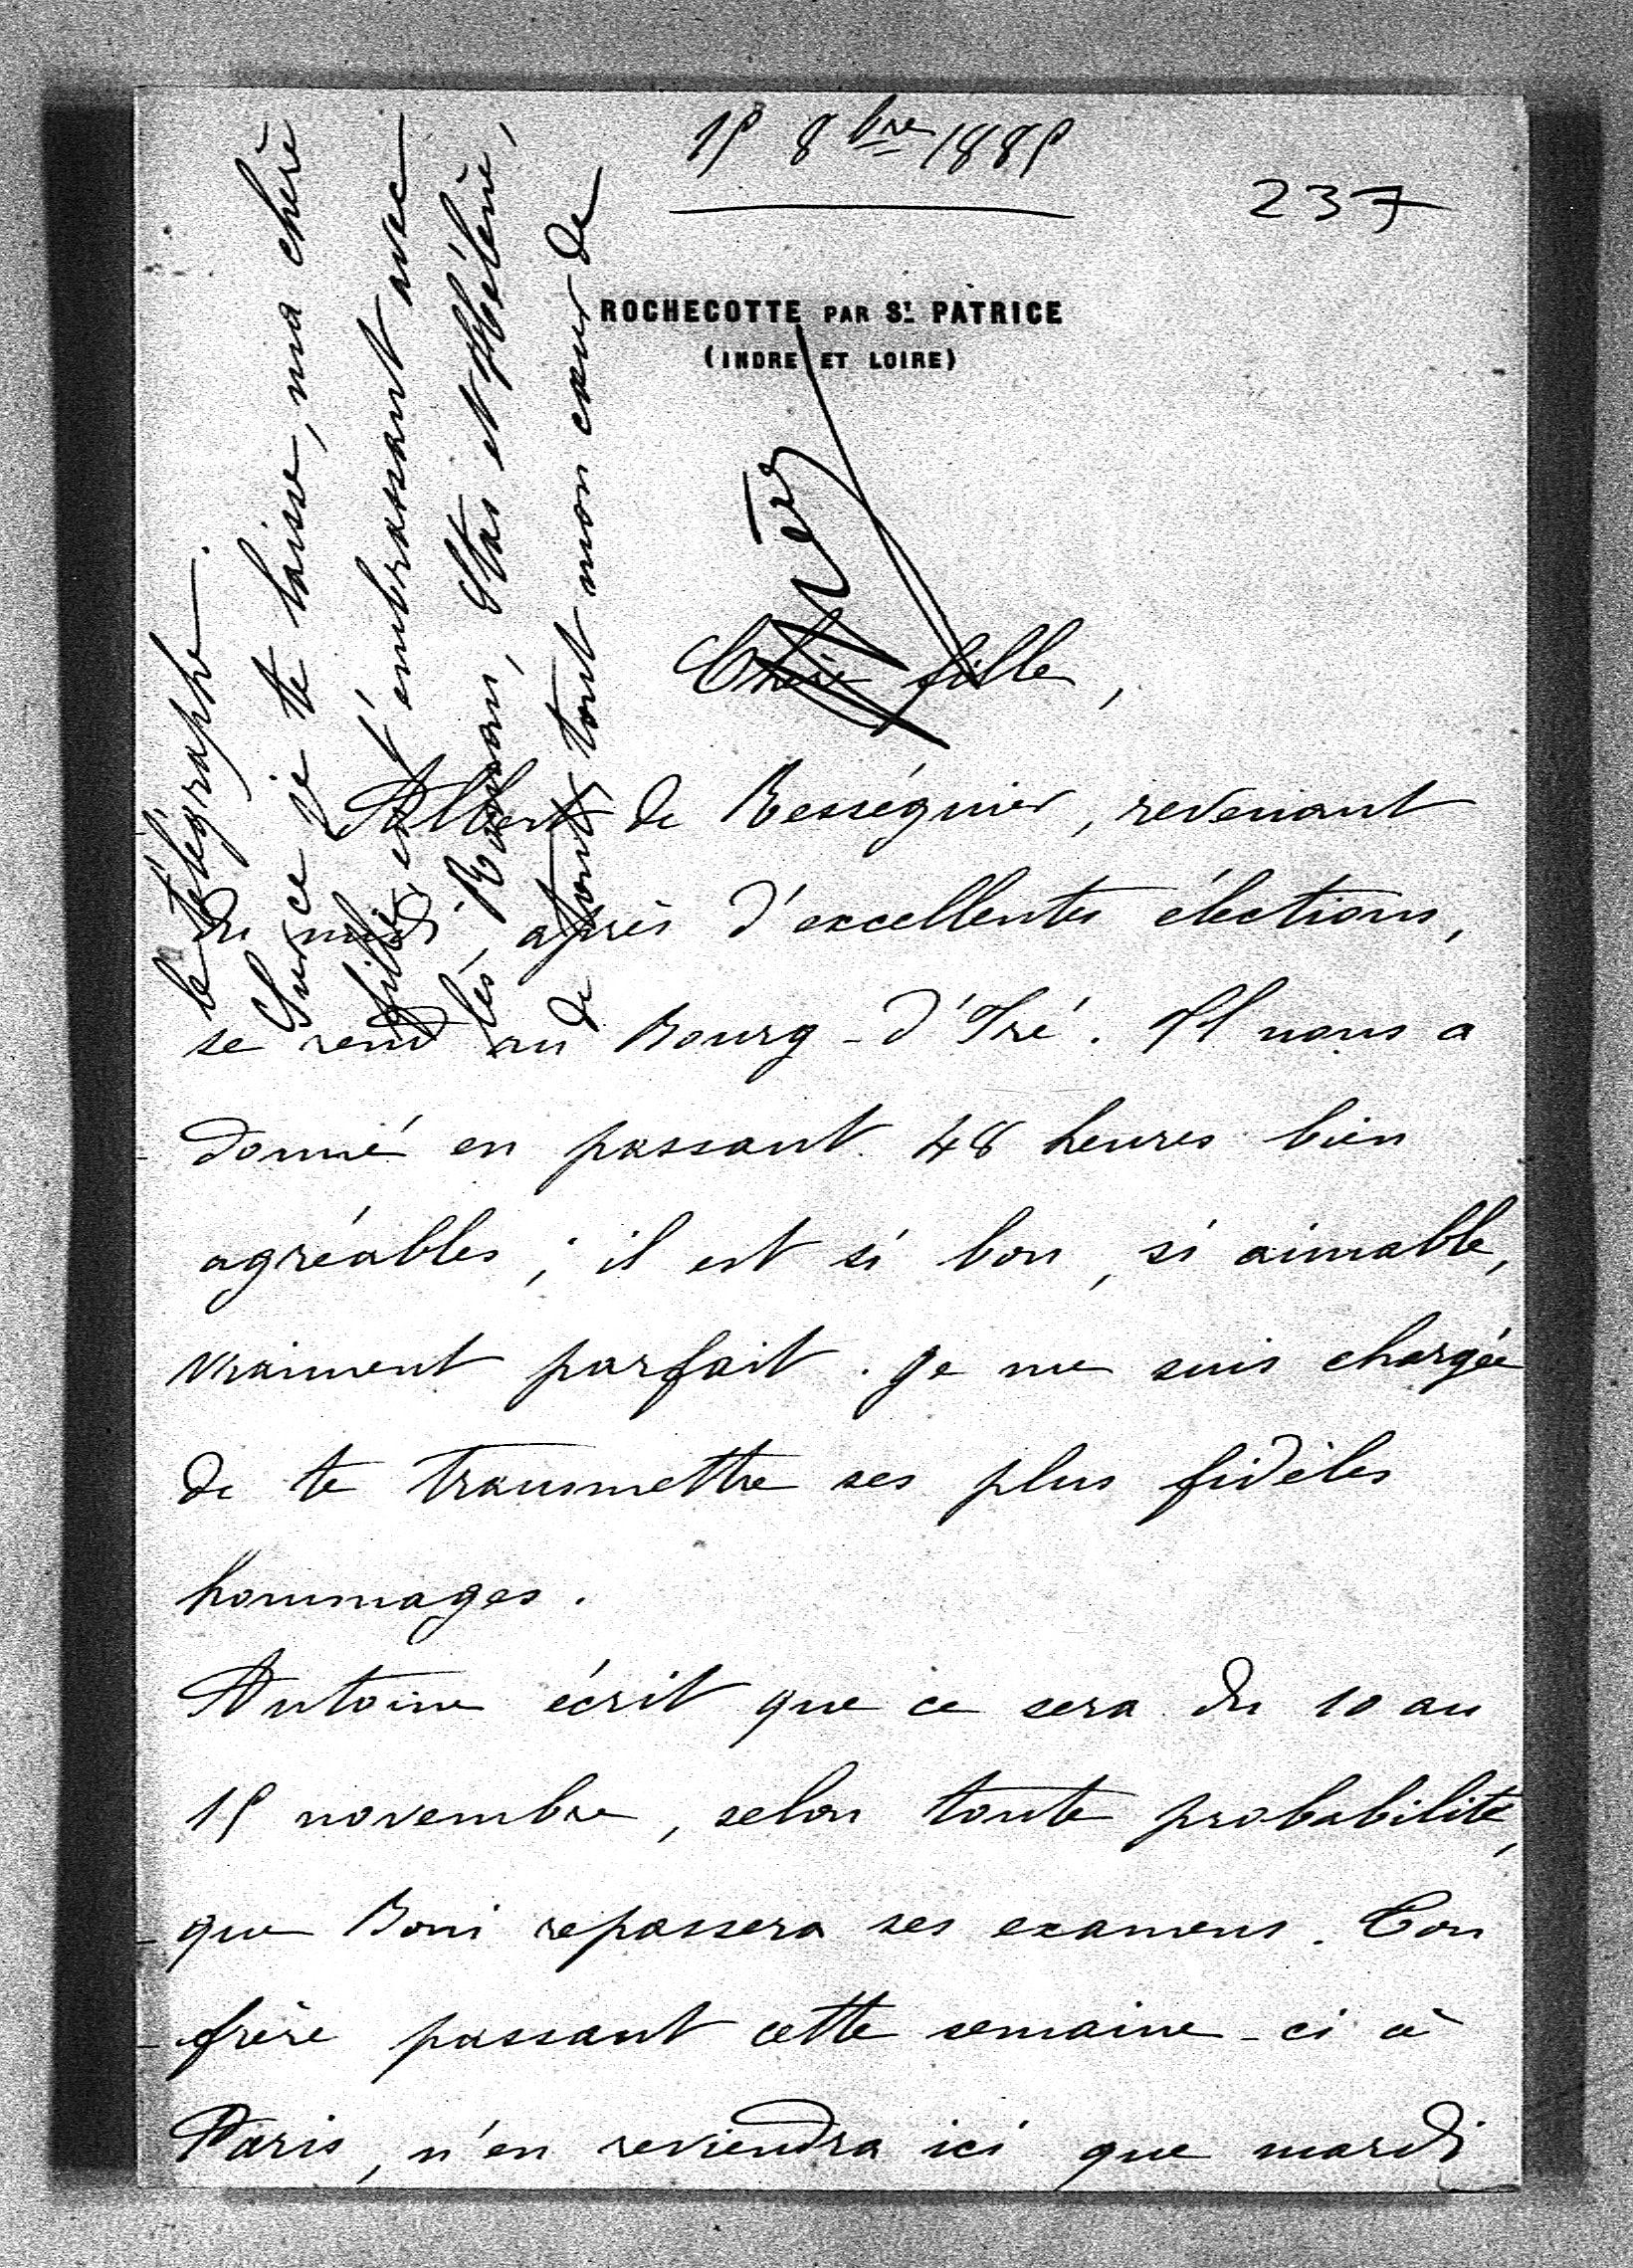 15 8bre 1885
237
ROCHECOTTE PAR St. PATRICE
(INDRE ET LOIRE)
Chère fille,
Albert de Rességuier, revenant
du midi après d'excellentes élections,
se rend au Bourg-d'Iré. Il nous a
donné en passant 48 heures bien
agréables ; il est si bon, si aimable,
vraiment parfait. Je me suis chargée
de te transmettre ses plus fidèles
hommages.
Antoine écrit que ce sera du 10 au
15 novembre, selon toute probabilité,
que Boni repassera ses examens. Ton
frère passant cette semaine-ci à
Paris, n'en reviendra ici que mardi
le télégraphe.
Sur ce je te laisse, ma chère
fille, en t'embrassant avec
les Stas et Hélène,
de tout mon cœur de